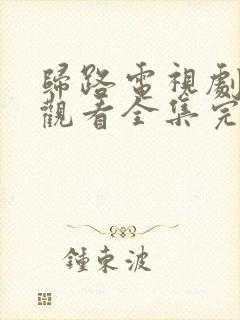 歸路電視劇
觀看全集完
鍾東波